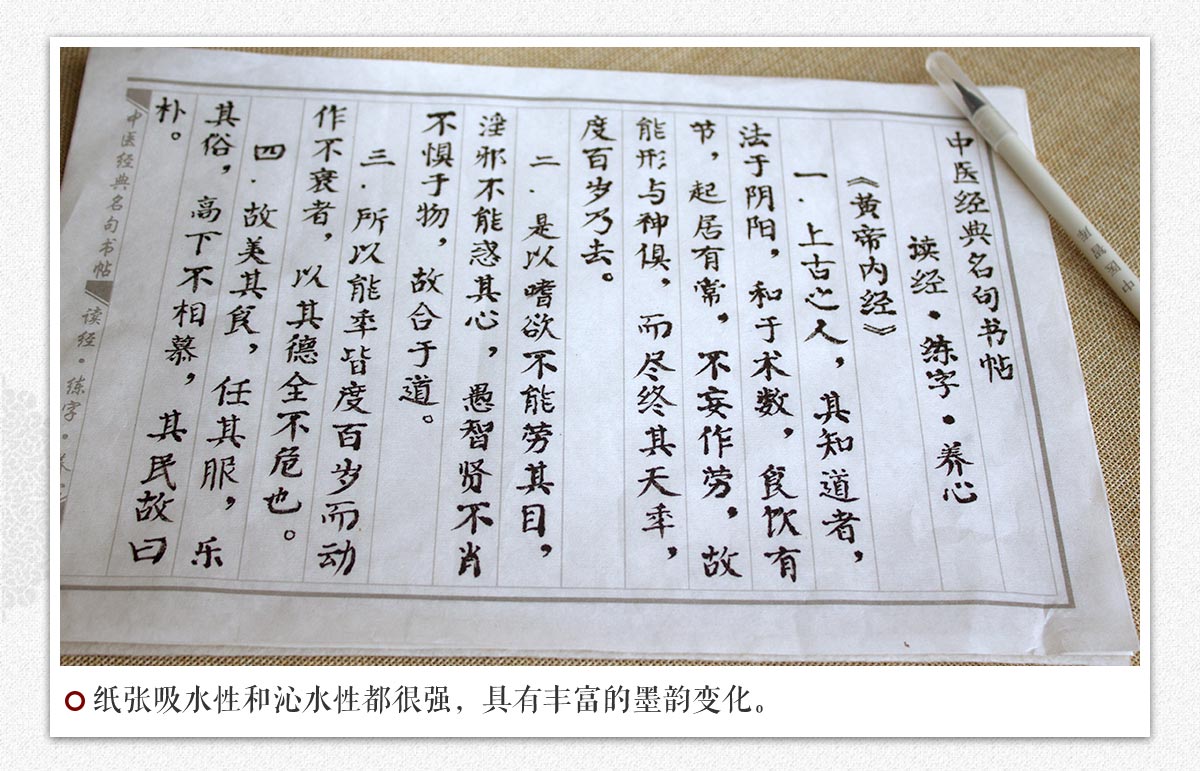 中医经典名句书帖
读经·练字·养心
《黄帝内经》
一.上古之人，其知道者，
法于阴阳，和于术数，食饮有
节，起居有常，不妄作劳，故
能形与神俱，而尽终其天年，
度百岁乃去。
二.是以嗜欲不能劳其目，
淫邪不能惑其心，愚智贤不肖
不惧于物，故合于道。
三.所以能年皆度百岁而动
作不衰者，以其德全不危也。
四.故美其食，任其服，乐
其俗，高下不相慕，其民故曰
朴。
中医经典名句书帖
读经。练字。
纸张吸水性和沁水性都很强，具有丰富的墨韵变化。